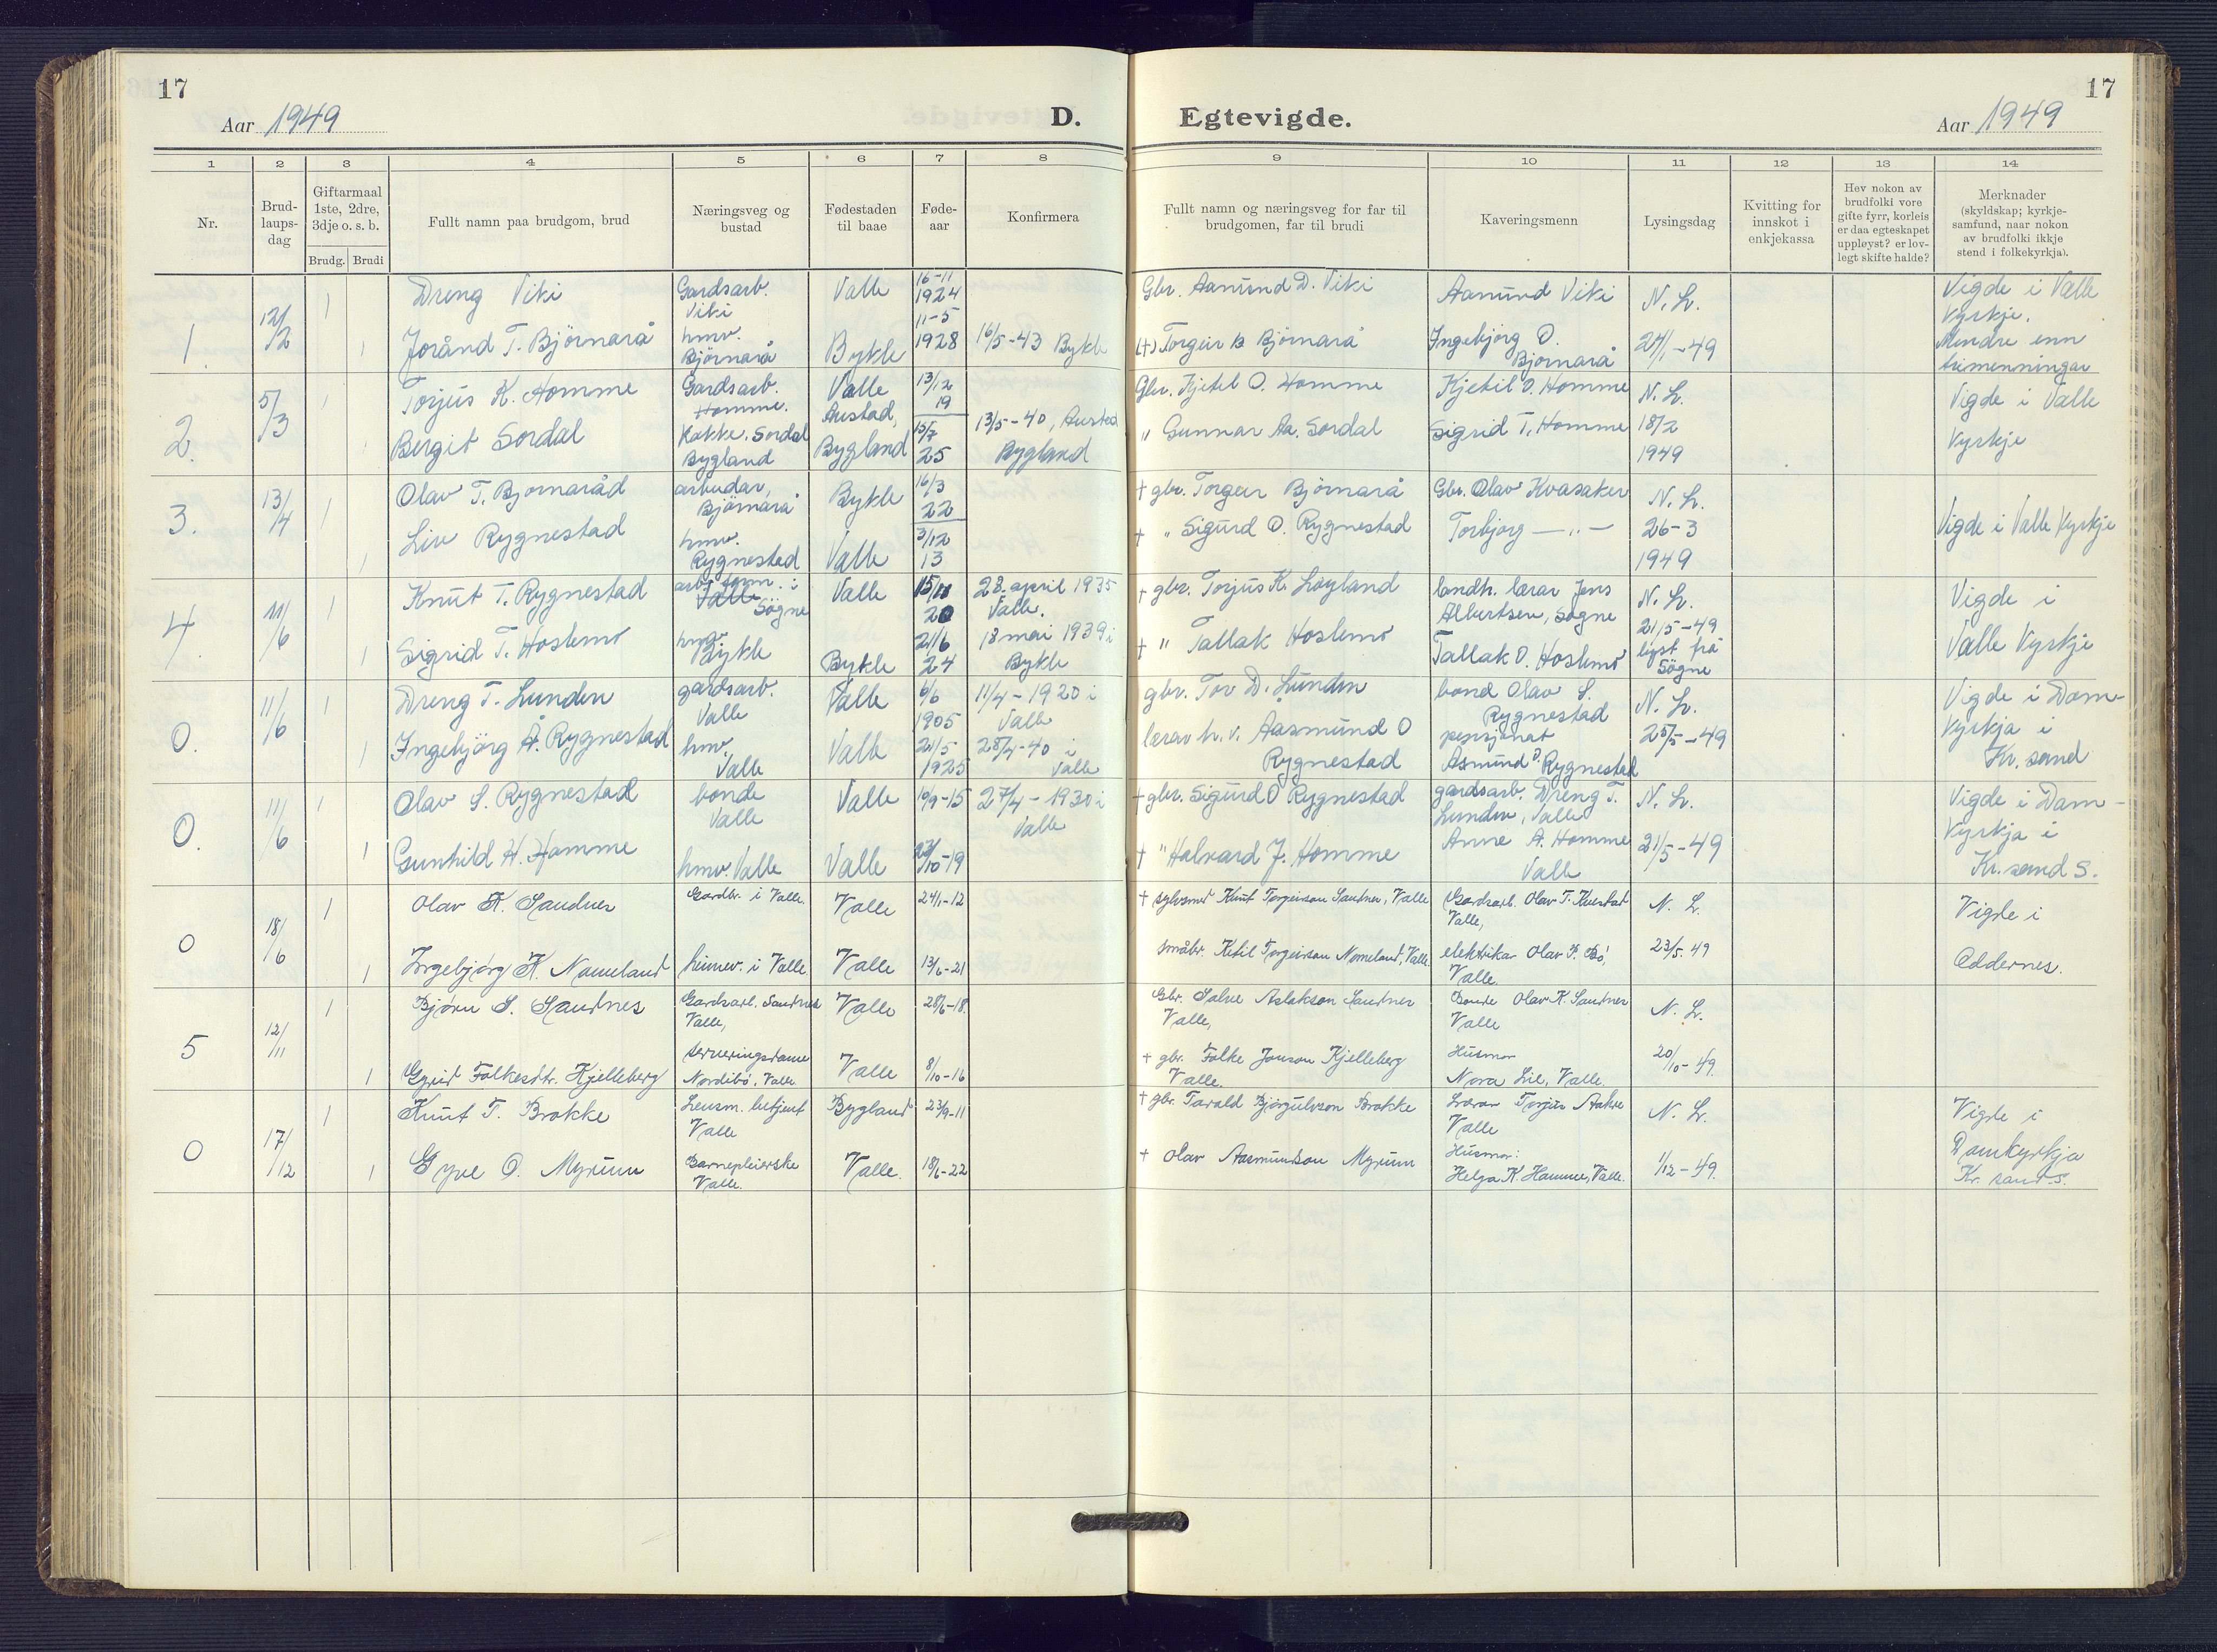 17
Aar 1949
D.
Egtevigde.
17
Aar 1949
1 2 3 4 5 6 7 8 9 10 11 12 13 14
Nr.
Brud-
laups-
dag
Giftarmaal
1ste, 2dre,
3dje o. s. b.
Brudg. Brudi
Fullt namn paa brudgom, brud
Næringsveg og
bustad
Fødestaden
til baae
Føde-
aar
Konfirmera
Fullt namn og næringsveg for far til
brudgomen, far til brudi
Kaveringsmenn
Lysingsdag
Kvitting for
innskot i
enkjekassa
Hev nokon av
brudfolki vore
gifte fyrr, korleis
er daa egteskapet
uppløyst? er lov-
legt skifte halde?
Merknader
(skyldskap; kyrkje-
samfund, naar nokon
av brudfolki ikkje
stend i folkekyrkja).
1. 12/2
1 Dreng Viki Gardsarb. Viki Valle 16-11 1924 Gbr. Aamund D. Viki Aamund Viki N. L. Vigde i Valle Kyrkje.
1 Joránd T. Björnarå hmv. Björnarå Bykle 11-5 1928 16/5-43 Bykle (+) Torgeir B Björnarå Ingebjörg O. Björnarå 24/1-49 Mindre enn trimenningar
2. 5/3
1 Torjus K. Homme Gardsarb. Homme. Valle Austad, 13/12 19 Gbr. Kjetil O. Homme Kjetil O. Homme N. L. Vigde i Valle
1 Bergit Sordal Kokke. Sordal Bygland Bygland 15/7 25 13/5-40, Austad Bygland " Gunnar Aa. Sordal Sigrid T. Homme 18/2 1949 Kyrkje
3. 13/4
1 Olav T. Bjornaråd arbeidar, Björnarå Bykle 16/3 22 + gbr. Torgeir Björnarå Gbr. Olav Kvasaker N. L. Vigde i Valle Kyrkje
1 Liv Rygnestad hmv. Rygnestad Valle 3/12 13 + " Sigurd O. Rygnestad Torbjorg —"— 26-3 1949
4. 11/6
1 Knut T. Rygnestad arb. form. i Valle Sögne Valle 15/11 20 28. april 1935 Valle. + gbr. Torjus K. Loyland landh. lærar Jens Albertsen, Sogne N. L. Vigde i
1 Sigrid T. Hoslemo hmv. Bykle Bykle 21/6 24 18 mai 1939 i Bykle + " Tallak Hoslemo Tallak O. Hoslemo 21/5-49 lyst frå Sögne Valle Kyrkje
0. 11/6
1 Dreng T. Lunden gardsarb. Valle Valle 6/6 1905 11/4-1920 i Valle gbr. Tor D. Lunden bond Olav S. Rygnestad N. L. Vigde i Dom-
1 Ingebjörg Å. Rygnestad hmv. Valle Valle 21/5 1925 28/4-40 i Valle lærar h. v. Aasmund O Rygnestad pensjonat Asmund O. Rygnestad 25/5-49 Kyrkja i Kr. sand
0. 11/6
1 Olav S. Rygnestad bonde Valle Valle 10/9-15 27/4-1930 i Valle + gbr. Sigurd O Rygnestad gardsarb. Dreng T. Lunden, Valle N. L. Vigde i Dom-
1 Gunhild H. Homme hmv. Valle Valle 23/10-19 + " Halvard J. Homme Anne A. Homme Valle 21/5-49 Kyrkja i Kr. sand S.
0 18/6
1 Olav K. Sandnes Gardbr. i Valle. Valle 24/1-12 + sylvsmed Knut Torgeirson Sandnes, Valle Gardsarb. Olav T. Kvestad Valle, N. L. Vigde i
1 Ingebjørg K. Nomeland heimev. i Valle Valle 13/6-21 småbr. Ketil Torgeirson Nomeland, Valle. elektrikar Olav K. Bö, Valle. 23/5.49 Oddernes.
5 12/11
1 Bjørn S. Sandnes Gardsarb. Sandnes Valle, Valle 28/6-18. Gbr. Salve Aslakson Sandnes Valle, Bonde Olav K. Sandnes Valle N. L.
1 Gyrid Folkesdtr. Kjelleberg serveringsdame Nordibö, Valle. Valle 8/10-16 + gbr. Folke Jonson Kjelleberg Valle. Husmor Nora Lie, Valle. 20/10-49.
0 17/12
1 Knut T. Brokke Lensm. betjent Valle Bygland 23/9-11 + gbr. Tarald Bjørgulvson Brokke Lærar Torjus Aakre Valle N. L. Vigde i
1 Gyve O. Myrum Barnepleierske Valle. Valle. 18/1-22 + Olav Aasmundson Myrum Husmor: Helga K. Homme, Valle. 1/12-49. Domkyrkja Kr. sand S.